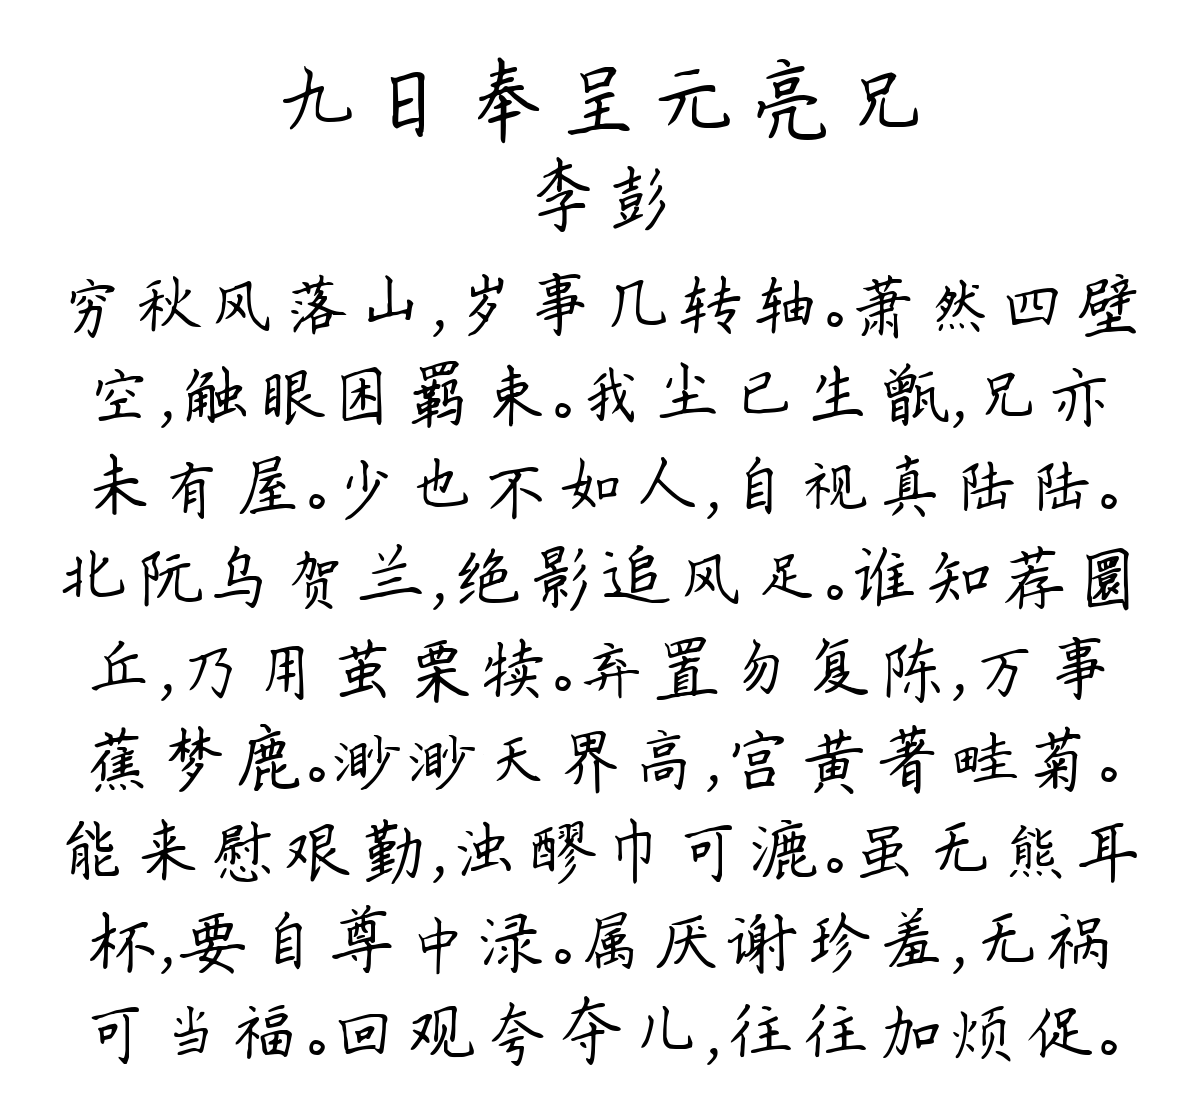 九日奉呈元亮兄
李彭
穷秋风落山,岁事几转轴。萧然四壁
空,触眼困羁束。我尘已生甑,兄亦
未有屋。少也不如人,自视真陆陆。
北阮乌贺兰,绝影追风足。谁知荐圜
丘,乃用茧栗犊。弃置勿复陈,万事
蕉梦鹿。渺渺天界高,宫黄著畦菊。
能来慰艰勤,浊醪巾可漉。虽无熊耳
杯,要自尊中渌。属厌谢珍羞,无祸
可当福。回观夸夺儿,往往加烦促。